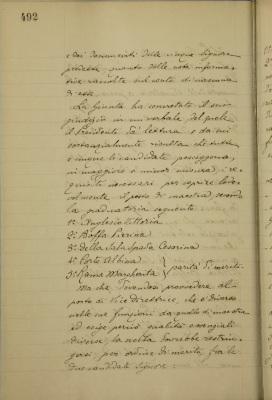 492
e dai documenti delle cinque signore
predette, quanto dalle note informa-
tive raccolte sul conto di ciascuna
di esse.
La Giunta ha concretato il suo
giudizio in un verbale del quale
il Presidente dà lettura e da cui
sostanzialmente risulta che tutte
e cinque le candidate posseggono,
in maggiore o minor misura, i re-
quisiti necessari per coprire lode-
volmente il posto di maestra secondo
la graduatoria seguente
1ª Anglesio Vittoria
2ª Boffa Pierina
3ª Della Sala Spada Cesarina
4ª Porte Albina
5ª Rama Margherita } parità di merito.
Ma che dovendosi provvedere al
posto di Vice direttrice, che è diverso
nelle sue funzioni da quello di maestra
ed esige perciò qualità essenziali
diverse, la scelta dovrebbe restrin-
gersi, per ordine di merito, fra le
due candidate Signore